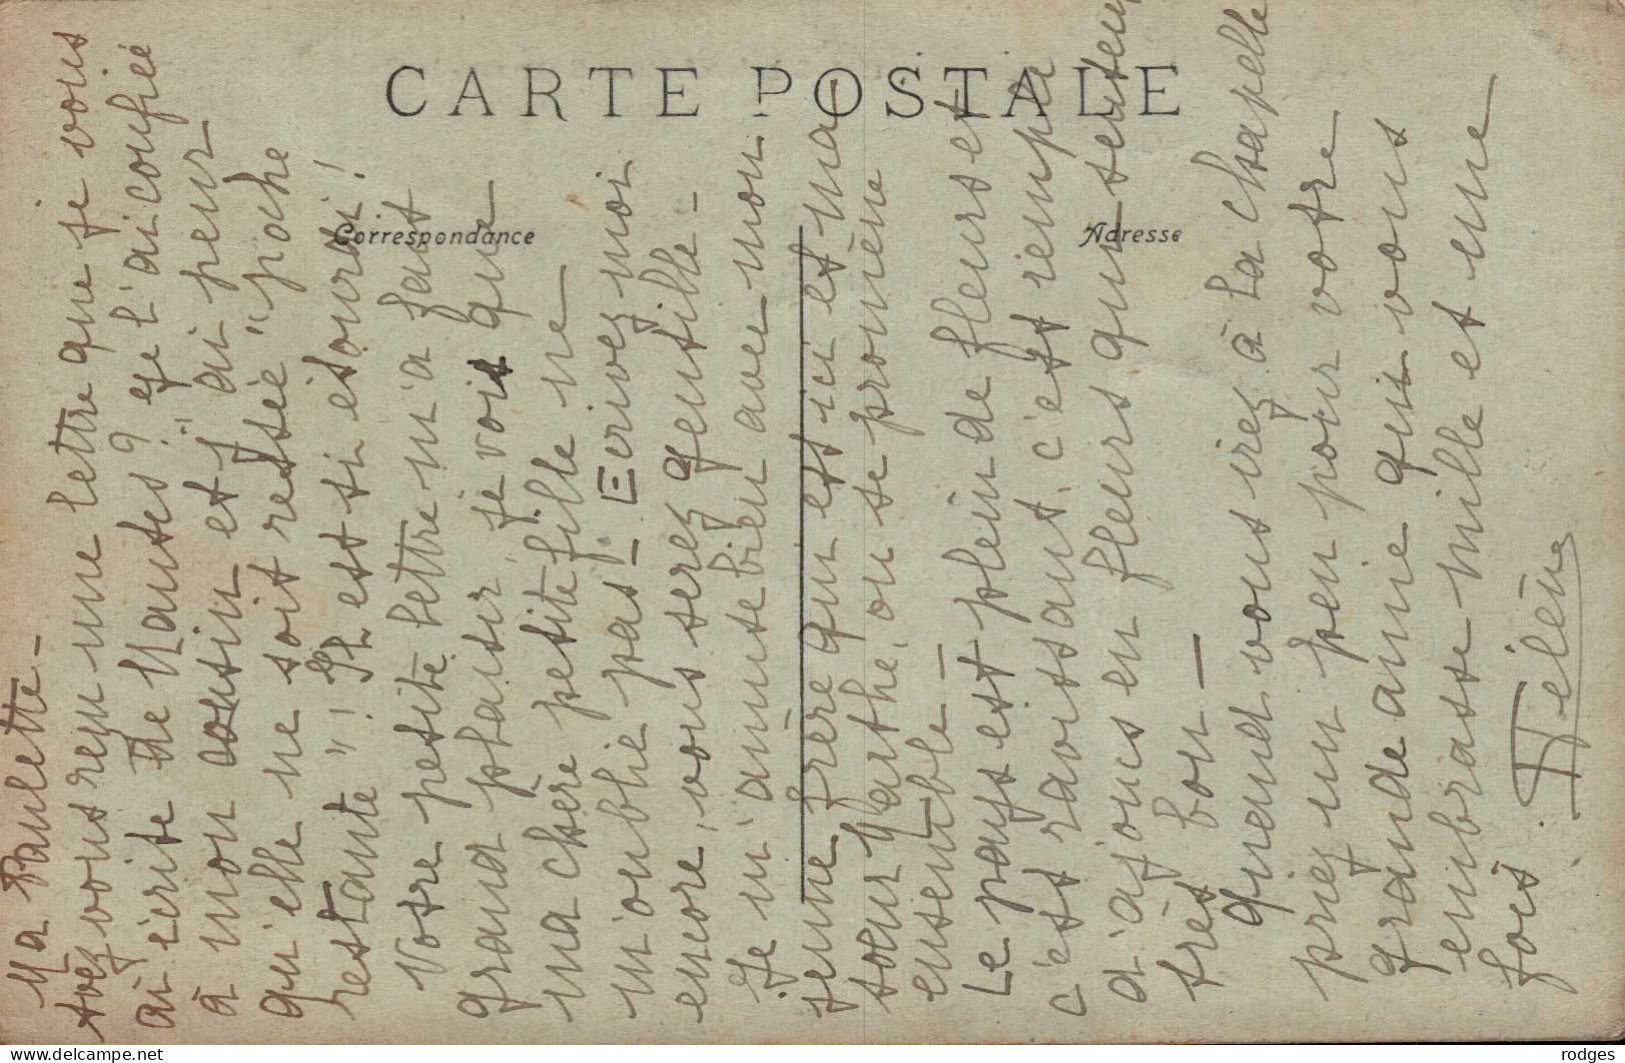 CARTE POSTALE
Correspondance
Adresse
Ma Paulette -
avez vous reçu une lettre que je vous
ai écrite de Nantes? je l'ai confiée
à mon cousin et j'ai peur
qu'elle ne soit restée "poche
restante"! Il est si étourdi!
Votre petite lettre m'a fait
grand plaisir, je vois que
ma chère petite fille ne
m'oublie pas! - Ecrivez moi
encore, vous serez gentille -
Je m'amuse bien avec mon
jeune frère qui est ici et ma
soeur Marthe, on se promène
ensemble -
Le pays est plein de fleurs et
c'est ravissant, c'est rempli
d'ajoncs en fleurs qui sentent
très bon -
Quand vous irez à la chapelle
priez un peu pour votre
grande amie qui vous
embrasse mille et une
fois.
Hélène
rodges - www.delcampe.net